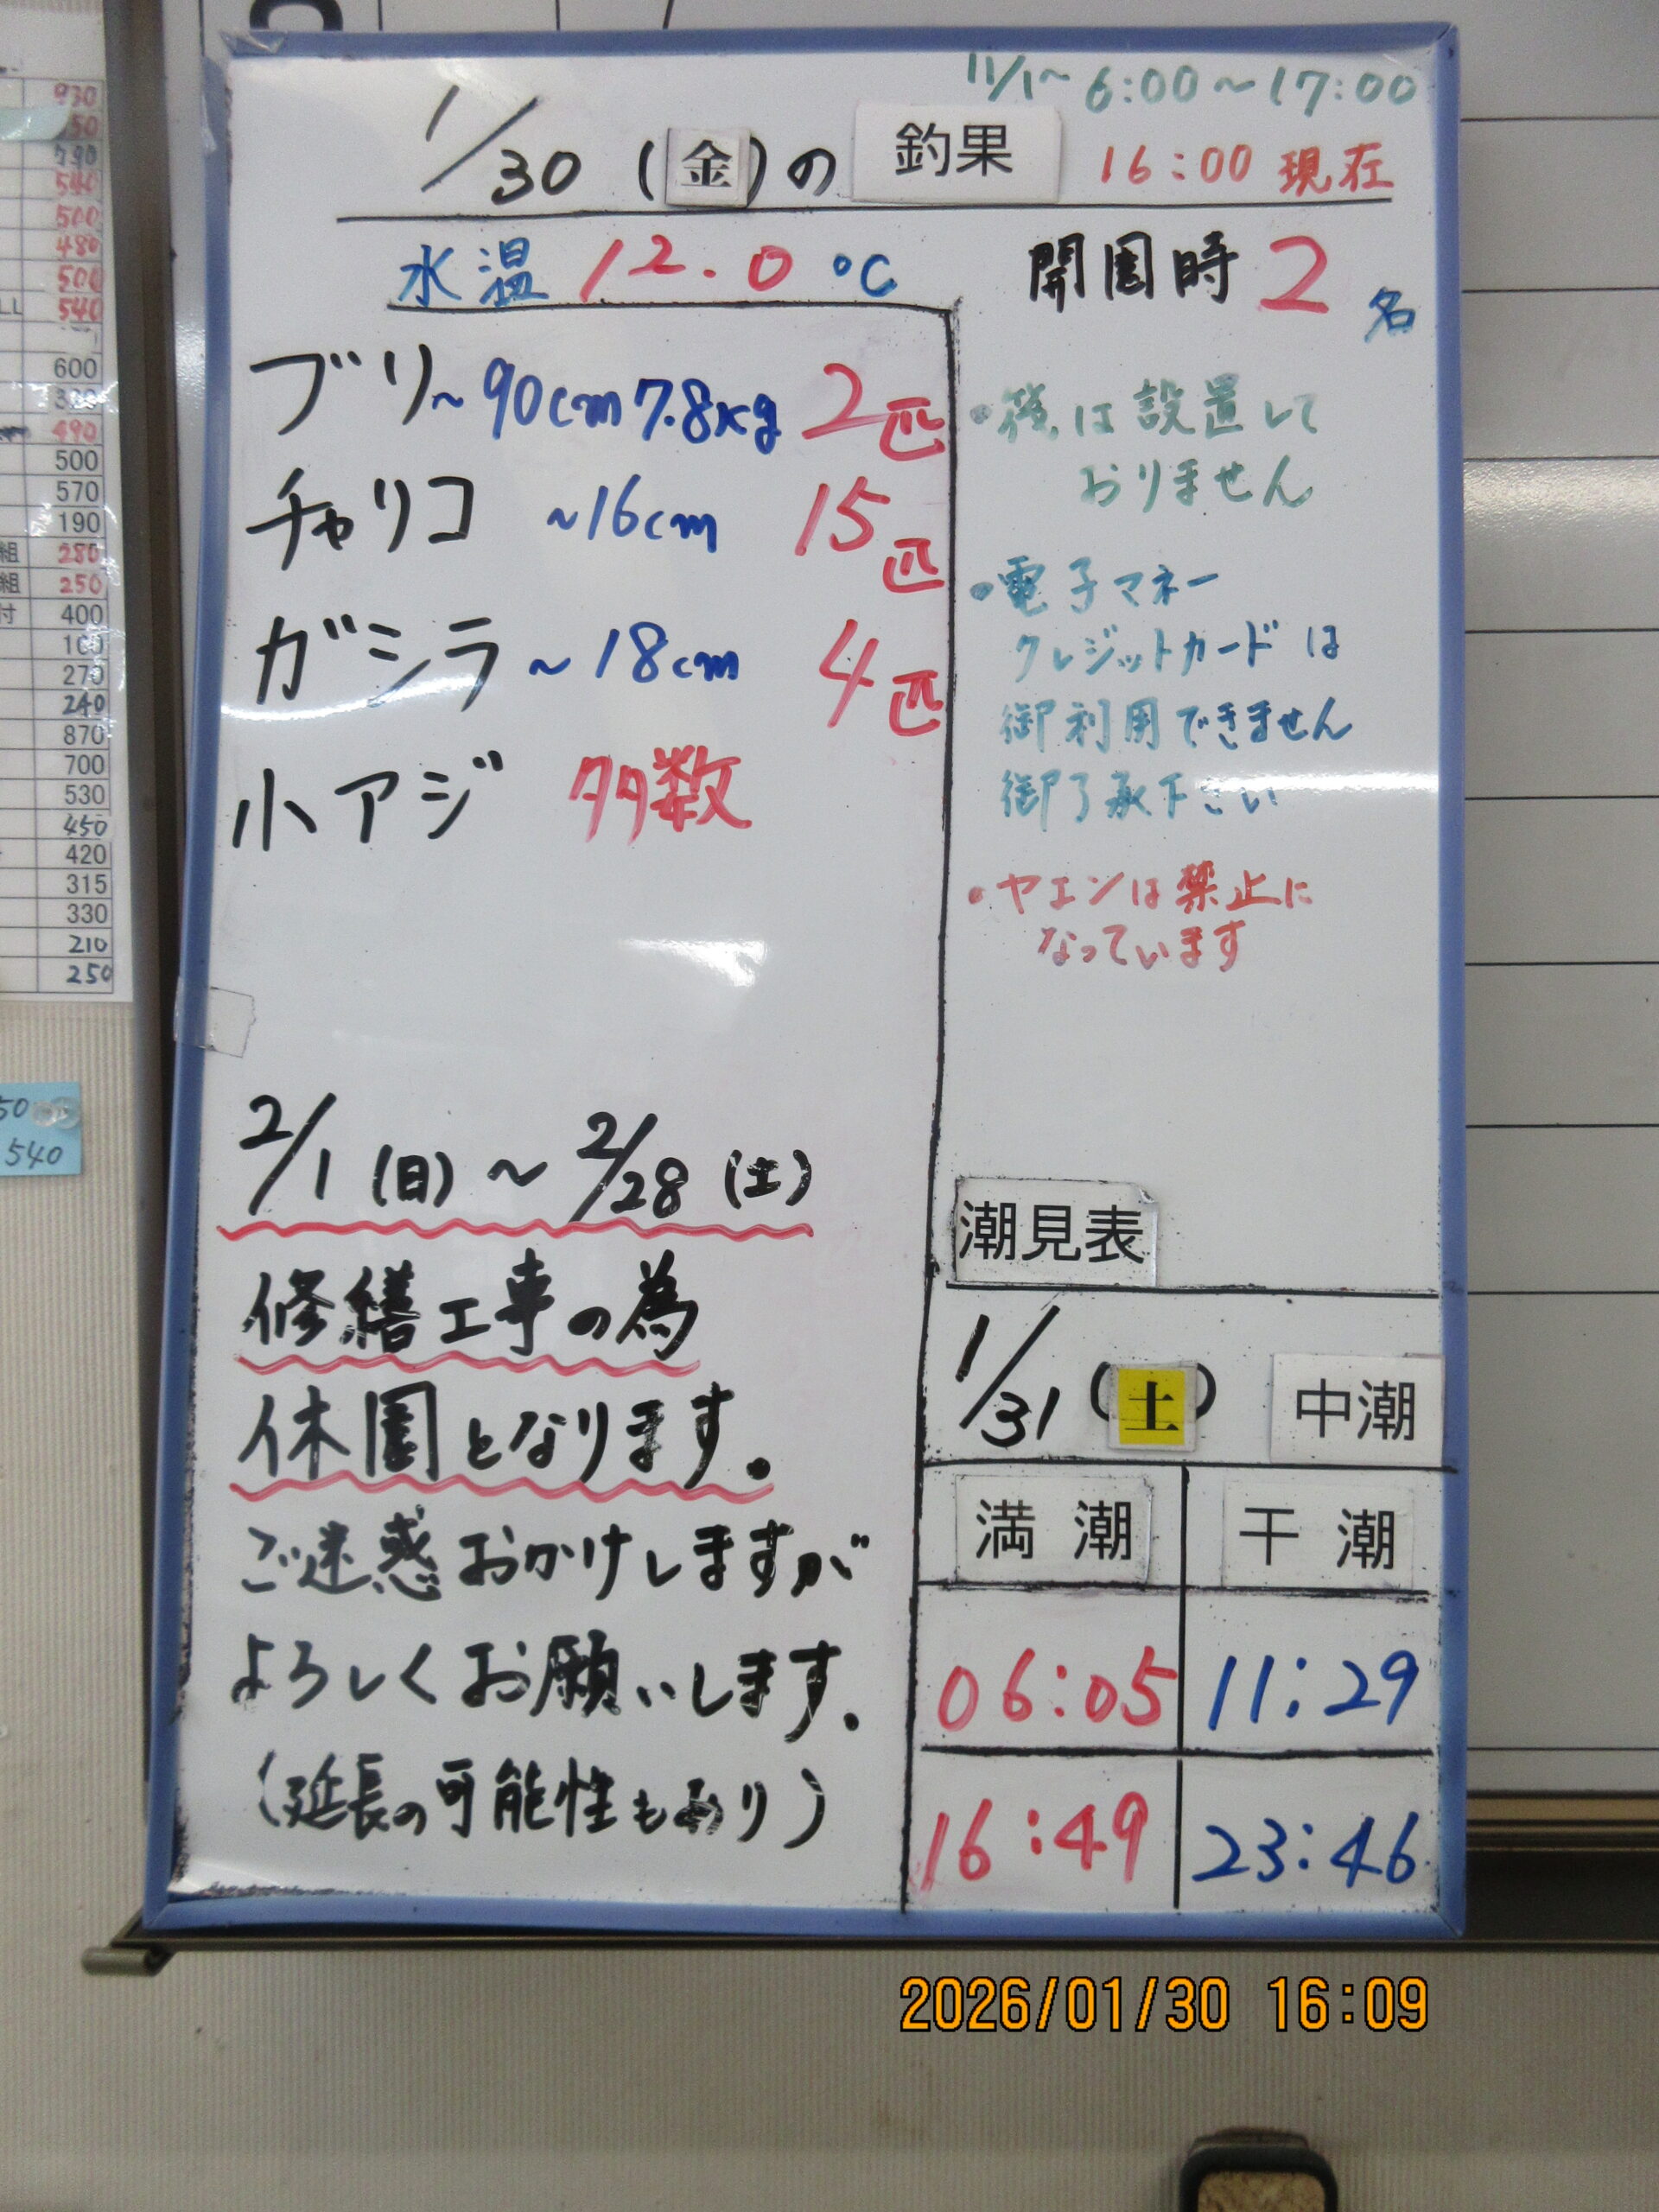 11/1〜 6:00〜17:00
1/30 (金)の 釣果 16:00 現在
水温 12.0 ℃
開園時 2名
ブリ〜90cm 7.8kg 2匹
チャリコ 〜16cm 15匹
ガシラ 〜18cm 4匹
小アジ 多数
2/1 (日) 〜 2/28 (土)
修繕工事の為
休園となります。
ご迷惑おかけしますが
よろしくお願いします.
(延長の可能性もあり)
は設置して
おりません
・電子マネー
クレジットカードは
御利用できません
御了承下さい
・ヤエンは禁止に
なっています
潮見表
1/31 (土) 中潮
満潮 干潮
06:05 11:29
16:49 23:46
930
790
540
500
480
500
LL 540
600
490
500
570
190
組 280
組 250
付 400
100
270
240
870
700
530
450
420
315
330
210
250
50
540
2026/01/30 16:09